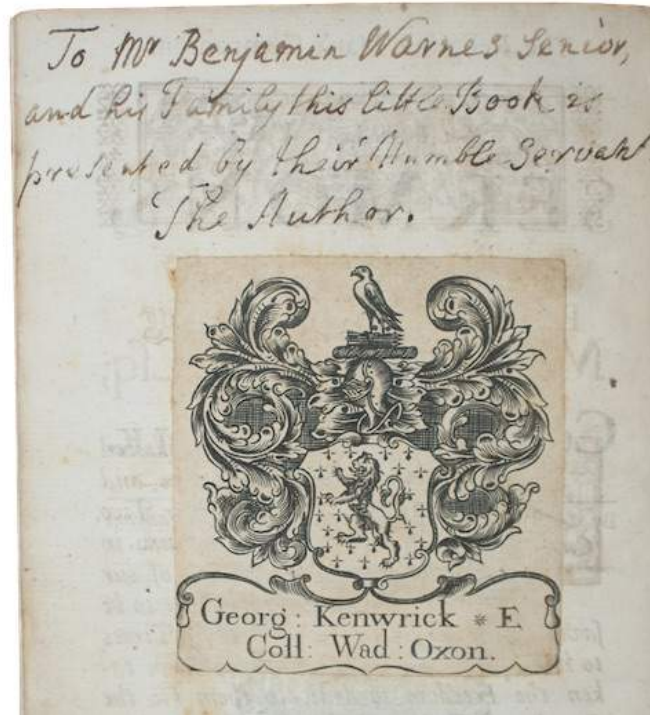 To Mr Benjamin Warnes Senior,
and his Family this little Book is
presented by their Humble Servant
The Author.
Georg : Kenwrick * E
Coll : Wad : Oxon.